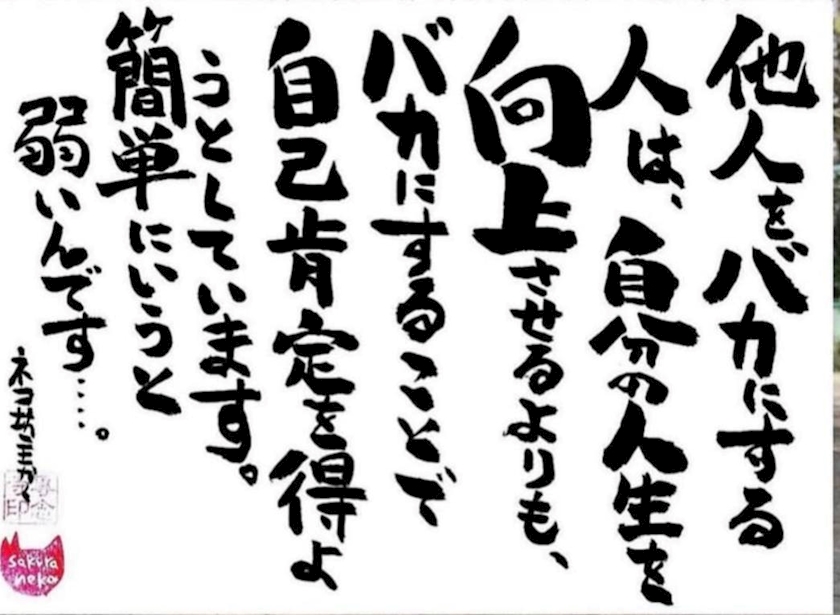 他人をバカにする
人は、自分の人生を
向上させるよりも、
バカにすることで
自己肯定を得よ
うとしています。
簡単にいうと
弱いんです…。
sakura
neko